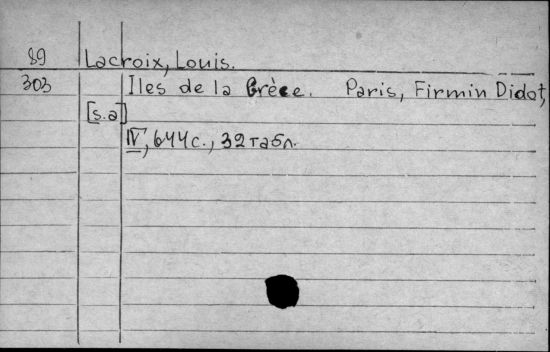 89 Lacroix, Louis.
303 Iles de la Grèce. Paris, Firmin Didot,
[s.a]
IV, 644с., 32табл.